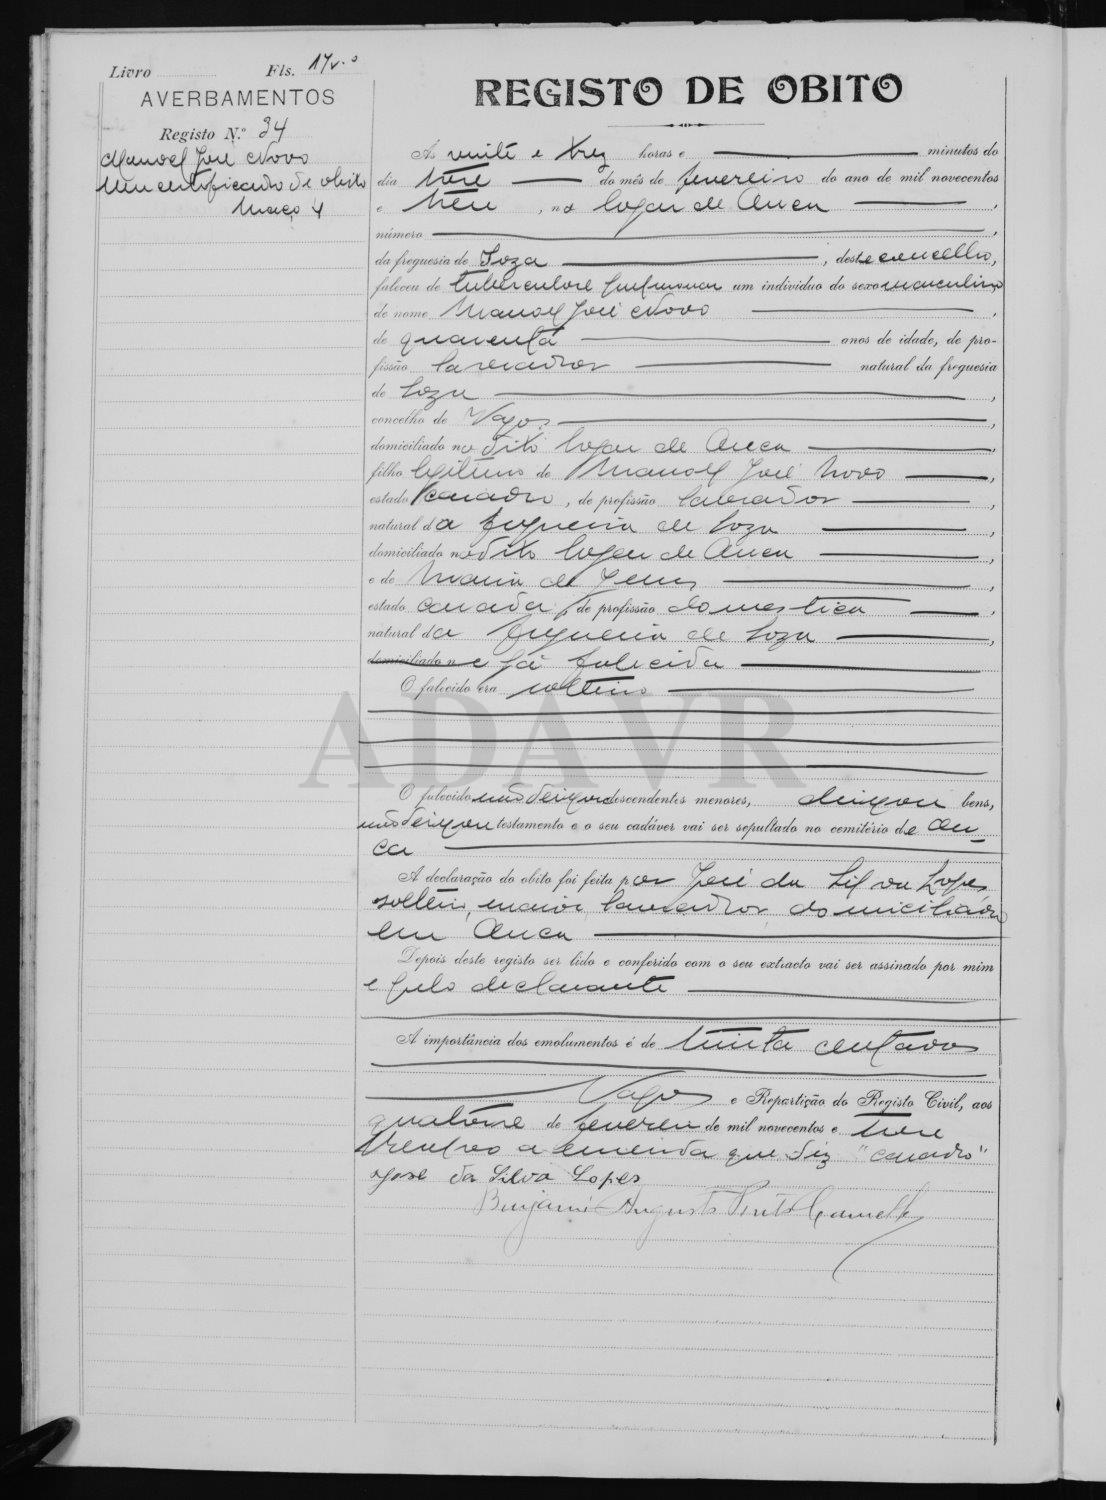 Livro Fls. 17v.º
AVERBAMENTOS
Registo N.º 34
Manoel José Novo
Um certificado de obito
Maço 4
REGISTO DE OBITO
Ás vinte e trez horas e minutos do
dia treze do mês de fevereiro do ano de mil novecentos
e treze, no logar de Ouca,
número,
da freguesia de Soza, deste concelho,
faleceu de tuberculose pulmonar um individuo do sexo masculino
de nome Manoel José Novo,
de quarenta anos de idade, de pro-
fissão lavrador natural da freguesia
de Soza,
concelho de Vagos,
domiciliado no dito logar de Ouca,
filho legitimo de Manoel José Novo,
estado casado, de profissão lavrador,
natural da freguesia de Soza,
domiciliado no dito logar de Ouca,
e de Maria de Jesus,
estado casada, de profissão domestica,
natural da freguesia de Soza,
domiciliado n e já falecida
O falecido era solteiro
ADAVR
O falecido não deixou descendentes menores, deixou bens,
não deixou testamento e o seu cadáver vai ser sepultado no cemitério de Ou-
ca
A declaração do obito foi feita por José da Silva Lopes
solteiro, maior, lavrador, domiciliado
em Ouca
Depois deste registo ser lido e conferido com o seu extracto vai ser assinado por mim
e pelo declarante
A importância dos emolumentos é de trinta centavos
Vagos e Repartição do Registo Civil, aos
quatorze de fevereiro de mil novecentos e treze
Resalvo a emenda que diz "casado"
José da Silva Lopes
Benjamim Augusto Pinto Camello